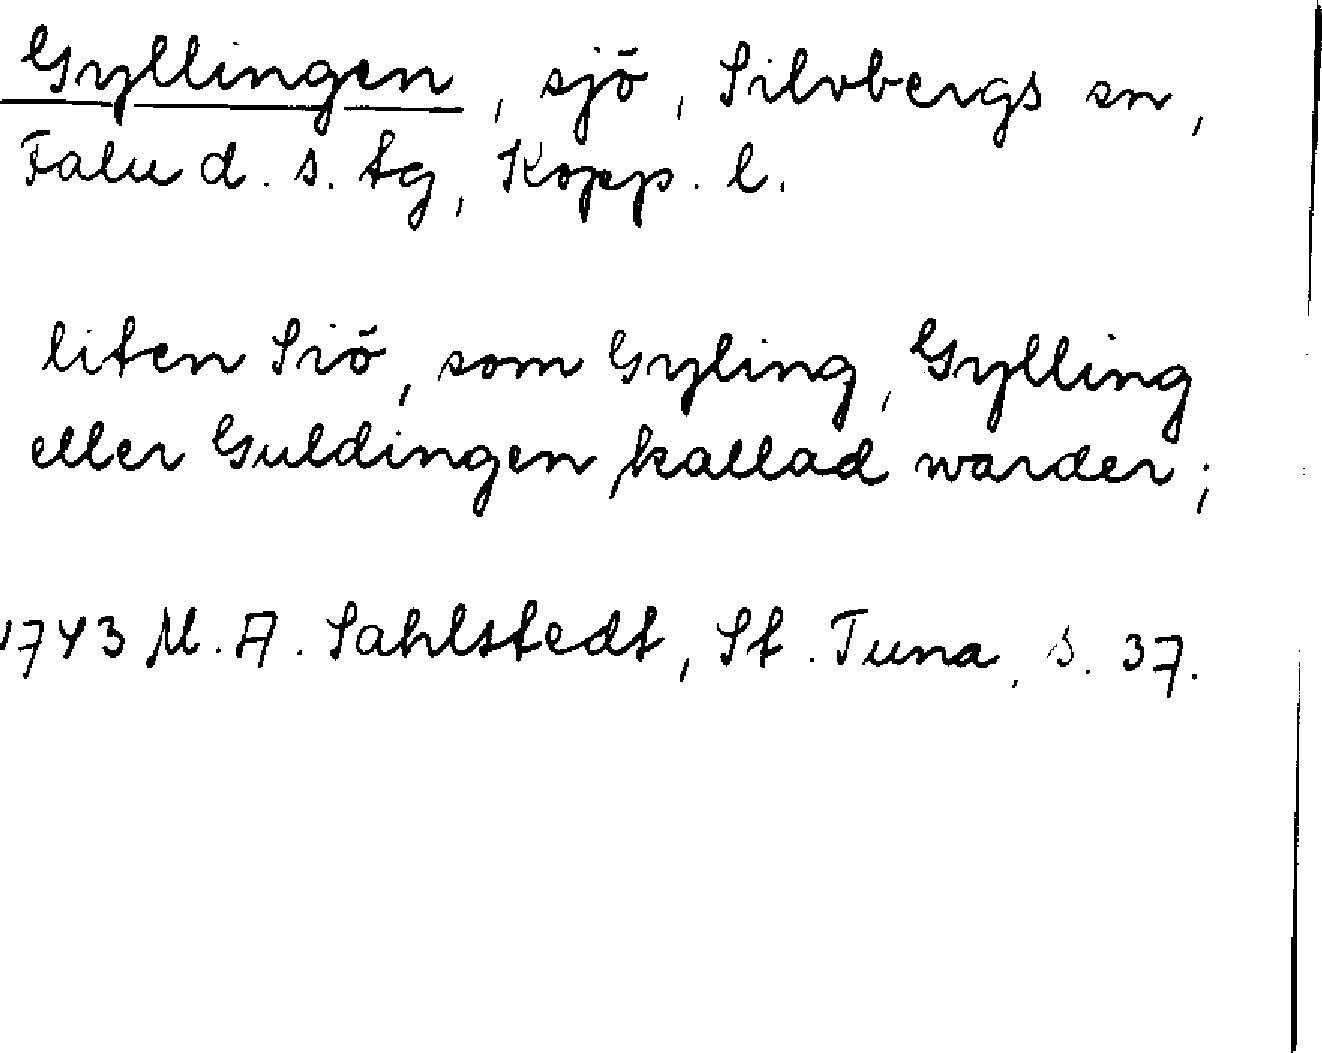 Gyllingen, sjö, Silvbergs sn,
Falu d. s. tg, Kopp. l.
liten Siö, som Gyling, Gylling
eller Guldingen kallad warder;
1743 M. A. Sahlstedt, St. Tuna, s. 37.